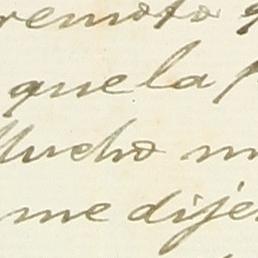 remoto
que la
Mucho m
me dije